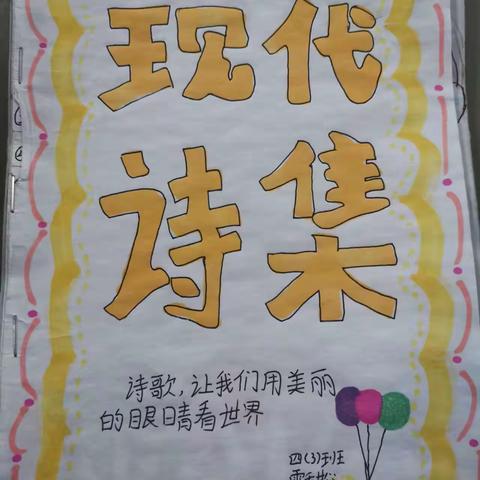 现代
诗集
诗歌，让我们用美丽
的眼睛看世界
四(3)班